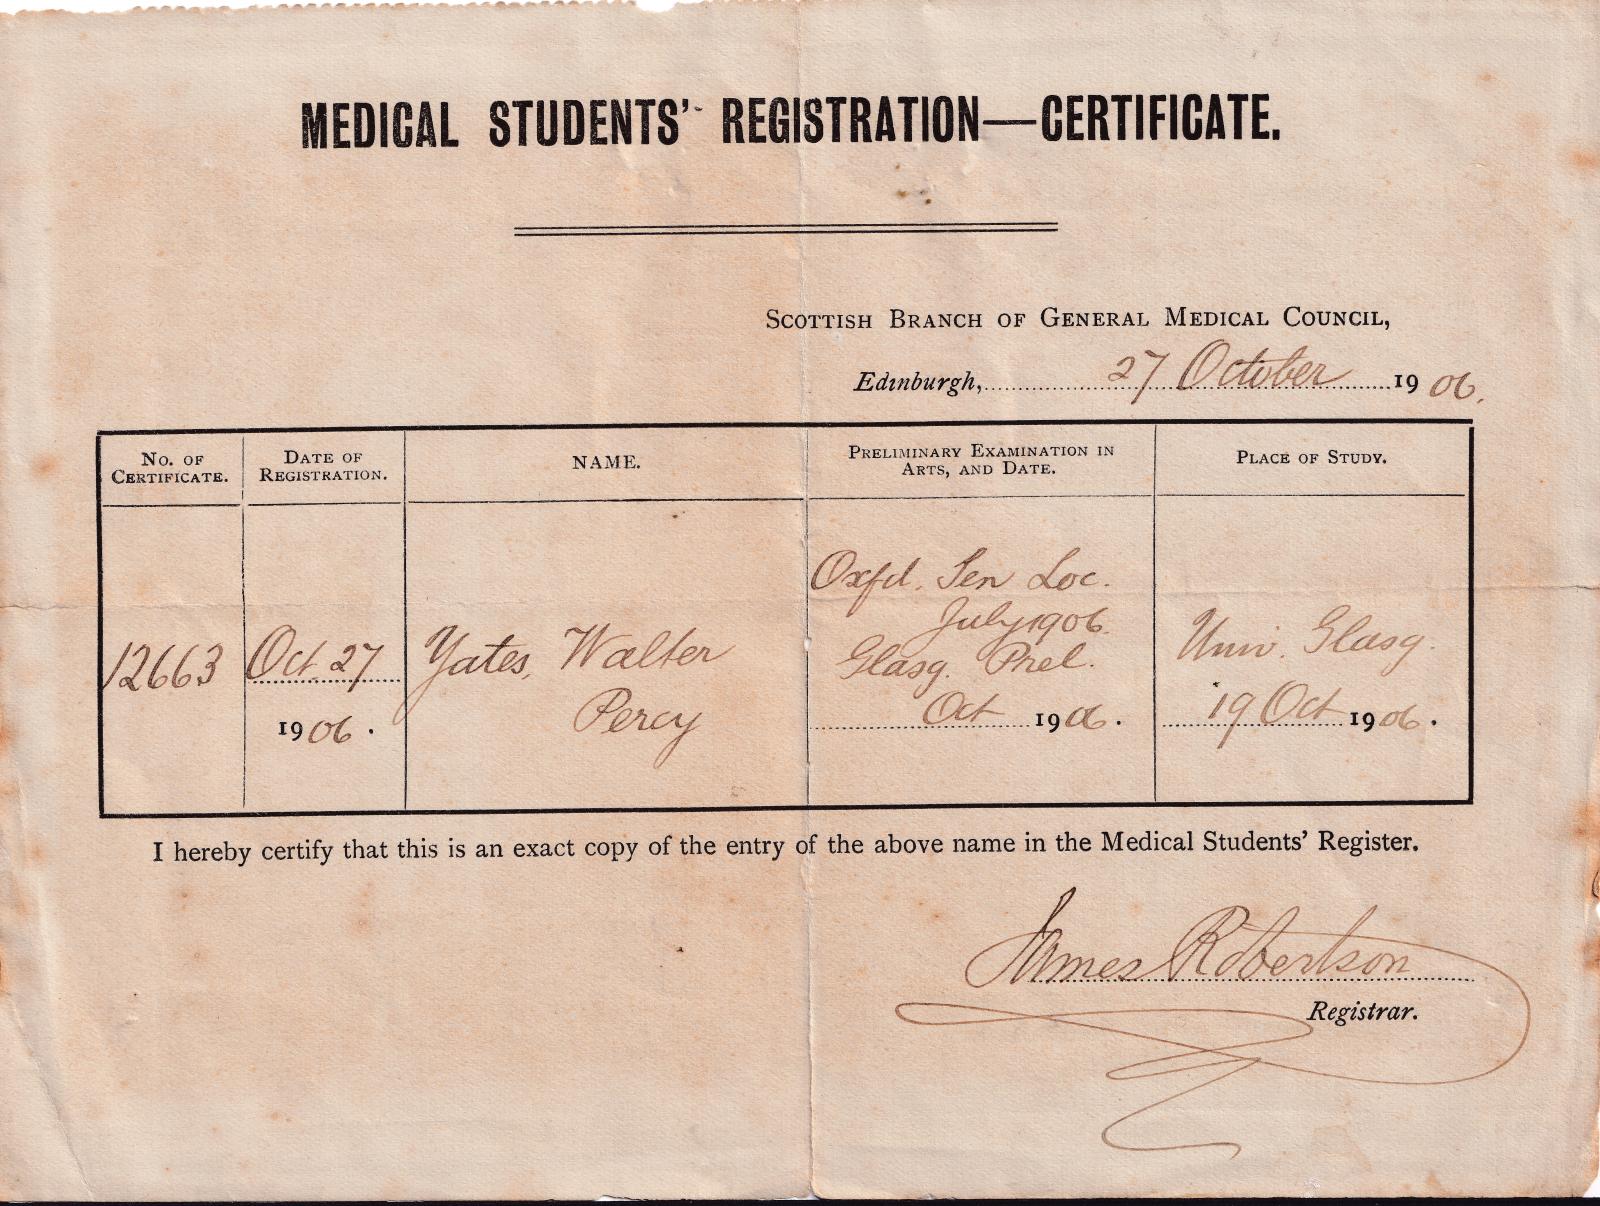 MEDICAL STUDENTS' REGISTRATION—CERTIFICATE.
SCOTTISH BRANCH OF GENERAL MEDICAL COUNCIL,
Edinburgh, 27 October 1906.
NO. OF CERTIFICATE.
DATE OF REGISTRATION.
NAME.
PRELIMINARY EXAMINATION IN ARTS, AND DATE.
PLACE OF STUDY.
12663
Oct. 27
1906.
Yates, Walter
Percy
Oxfd. Sen Loc.
July 1906.
Glasg. Prel.
Oct 1906.
Univ. Glasg.
19 Oct 1906.
I hereby certify that this is an exact copy of the entry of the above name in the Medical Students' Register.
James Robertson
Registrar.